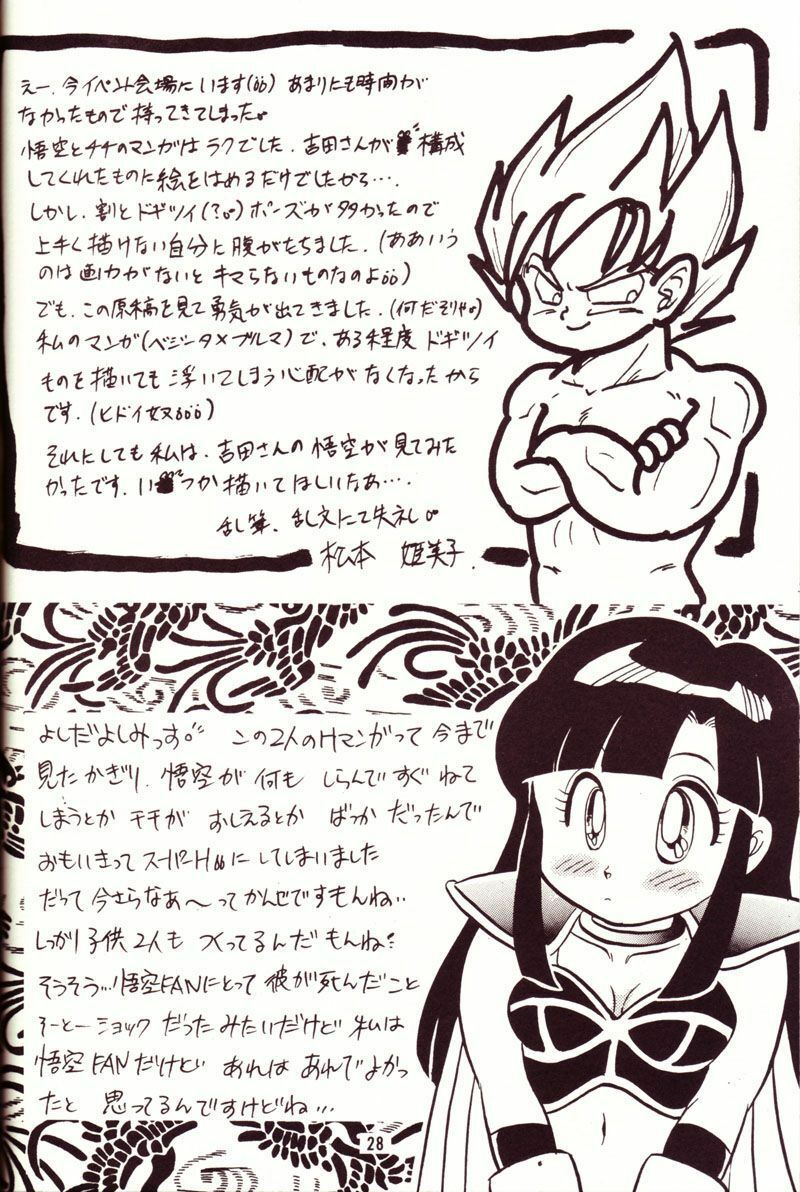 えー、今イベント会場にいます(öö) あまりにも時間が
なかったもので持ってきてしまった。
悟空とチチのマンガはラクでした。吉田さんが構成
してくれたものに絵をはめるだけでしたから….
しかし、割とドギツイ(?。)ポーズが多かったので
上手く描けない自分に腹がたちました。(ああいう
のは画力がないとキマらないものなのよöö)
でも、この原稿を見て勇気が出てきました。(何だそりゃ。)
私のマンガ(ベジータ×ブルマ)で、ある程度 ドギツイ
ものを描いても浮いてしまう心配がなくなったから
です。(ヒドイ奴ööö)
それにしても私は、吉田さんの悟空が見てみた
かったです。いくつか描いてほしいなあ….
乱筆、乱文にて失礼。
松本 姫美子.
よしだよしみっす。 この2人のHマンガって今まで
見たかぎり、悟空が何も しらんで すぐ ねて
しまうとか チチが おしえるとか ばっか だったんで
おもいきって スーパーH öö にしてしまいました
だって 今さらなあ〜って かんじですもんね..
しっかり子供2人も つくってるんだもんね?
そうそう…!悟空FANにとって 彼が死んだこと
そーとーショック だったみたいだけど 私は
悟空FANだけど あれは あれで よかっ
たと 思ってるんですけどね…
28